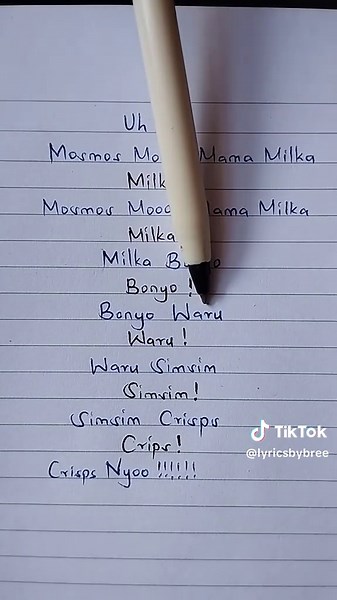 Uh
Mosmos Mo Mama Milka
Milk
Mosmos Mooo Mama Milka
Milka
Milka
Bonyo !
Bonyo Waru
Waru !
Waru Simsim
Simsim !
Simsim Crisps
Crips !
Crisps Nyoo !!!!!!
TikTok
@lyricsbybree